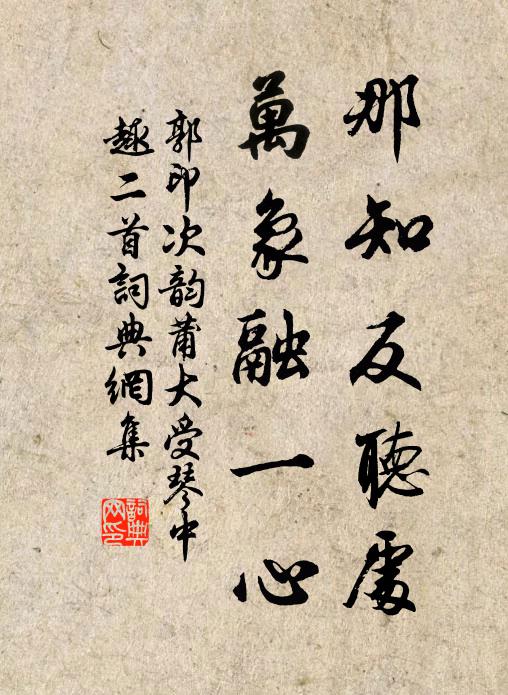 那知反聽處
萬象融一心
郭印次韵蒲大受琴中
趣二首詞典網集
詞典
网印